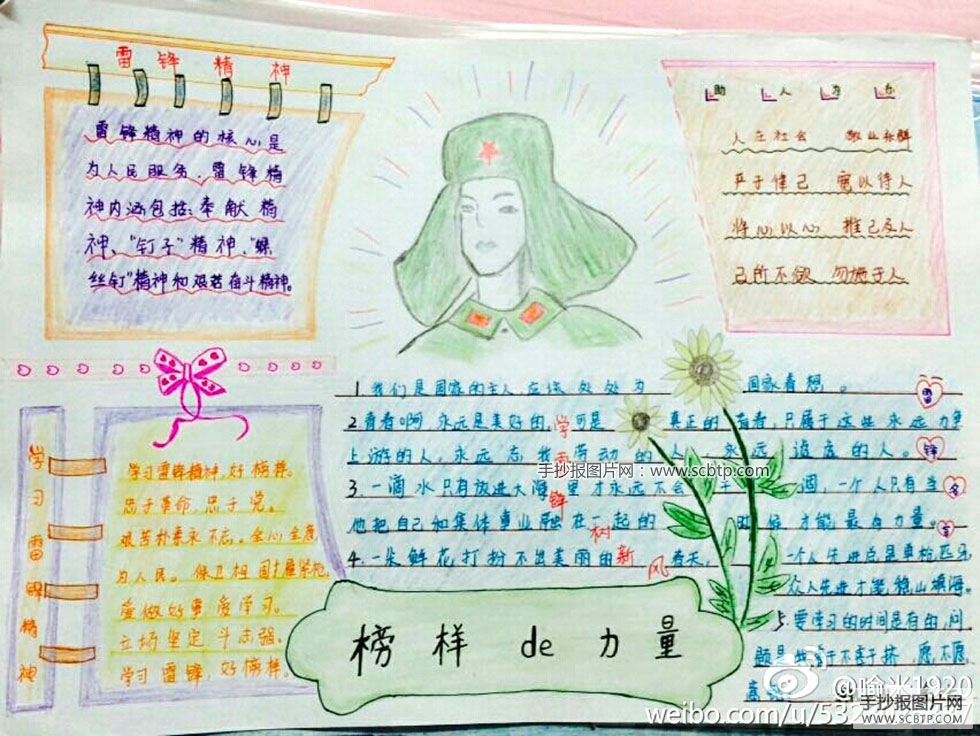 雷锋精神
雷锋精神的核心是
为人民服务。雷锋精
神内涵包括:奉献精
神、"钉子"精神、"螺
丝钉"精神和艰苦奋斗精神。
助人为乐
人在社会 敬业乐群
严于律己 宽以待人
将心以心 推己及人
己所不欲 勿施于人
学习雷锋精神
学习雷锋精神,好榜样。
忠于革命,忠于党。
艰苦朴素永不忘。全心全意
为人民。保卫祖国
爱做好事爱学习。
立场坚定 斗志强。
学习雷锋,好榜样。
1.我们是国家的主人,应该处处为国家着想。
2.青春啊,永远是美好的,可是真正的青春,只属于这些永远力争
上游的人,永远忘我劳动的人,永远谦虚的人。
3.一滴水只有放进大海里才永远不会干涸,一个人只有当
他把自己和集体事业融在一起的时候才能最有力量。
4.一朵鲜花打扮不出美丽的春天,一个人先进总是单枪匹马
众人先进才能移山填海。
5.要学习的时间是有的,问
题是
愿不愿
学雷锋树新风
雷锋名言
榜样de力量
手抄报图片网:www.scbtp.com
@喻米1920
手抄报图片网
WWW.SCBTP.COM
weibo.com/u/532